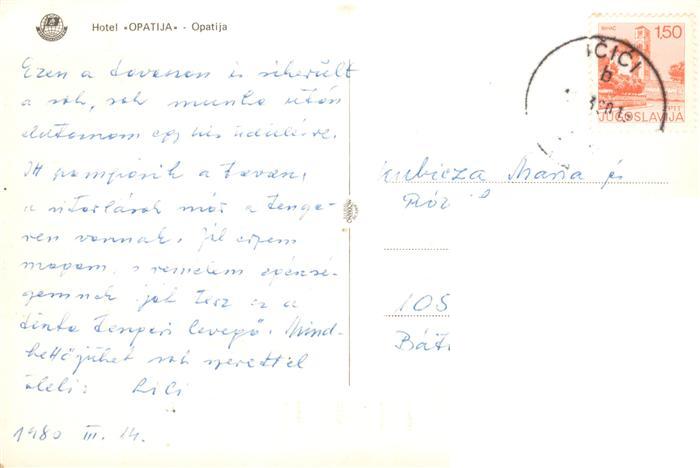 Hotel •OPATIJA• - Opatija
Ezen a tavaszon is sikerült
a sok, sok munka után
eljutnom egy kis üdülésre.
Itt pompázik a tavasz,
a vitorlások már a tenge-
ren vannak. Jól érzem
magam, s remélem egészsé-
gemnek jót tesz ez a
tiszta tengeri levegő. Mind-
kettőjüket sok szeretettel
öleli: Lili
1980 III. 14.
BIHAĆ 1,50
PTT
JUGOSLAVIJA
IČIĆI
b
Kubicza Mária és
105
Bát